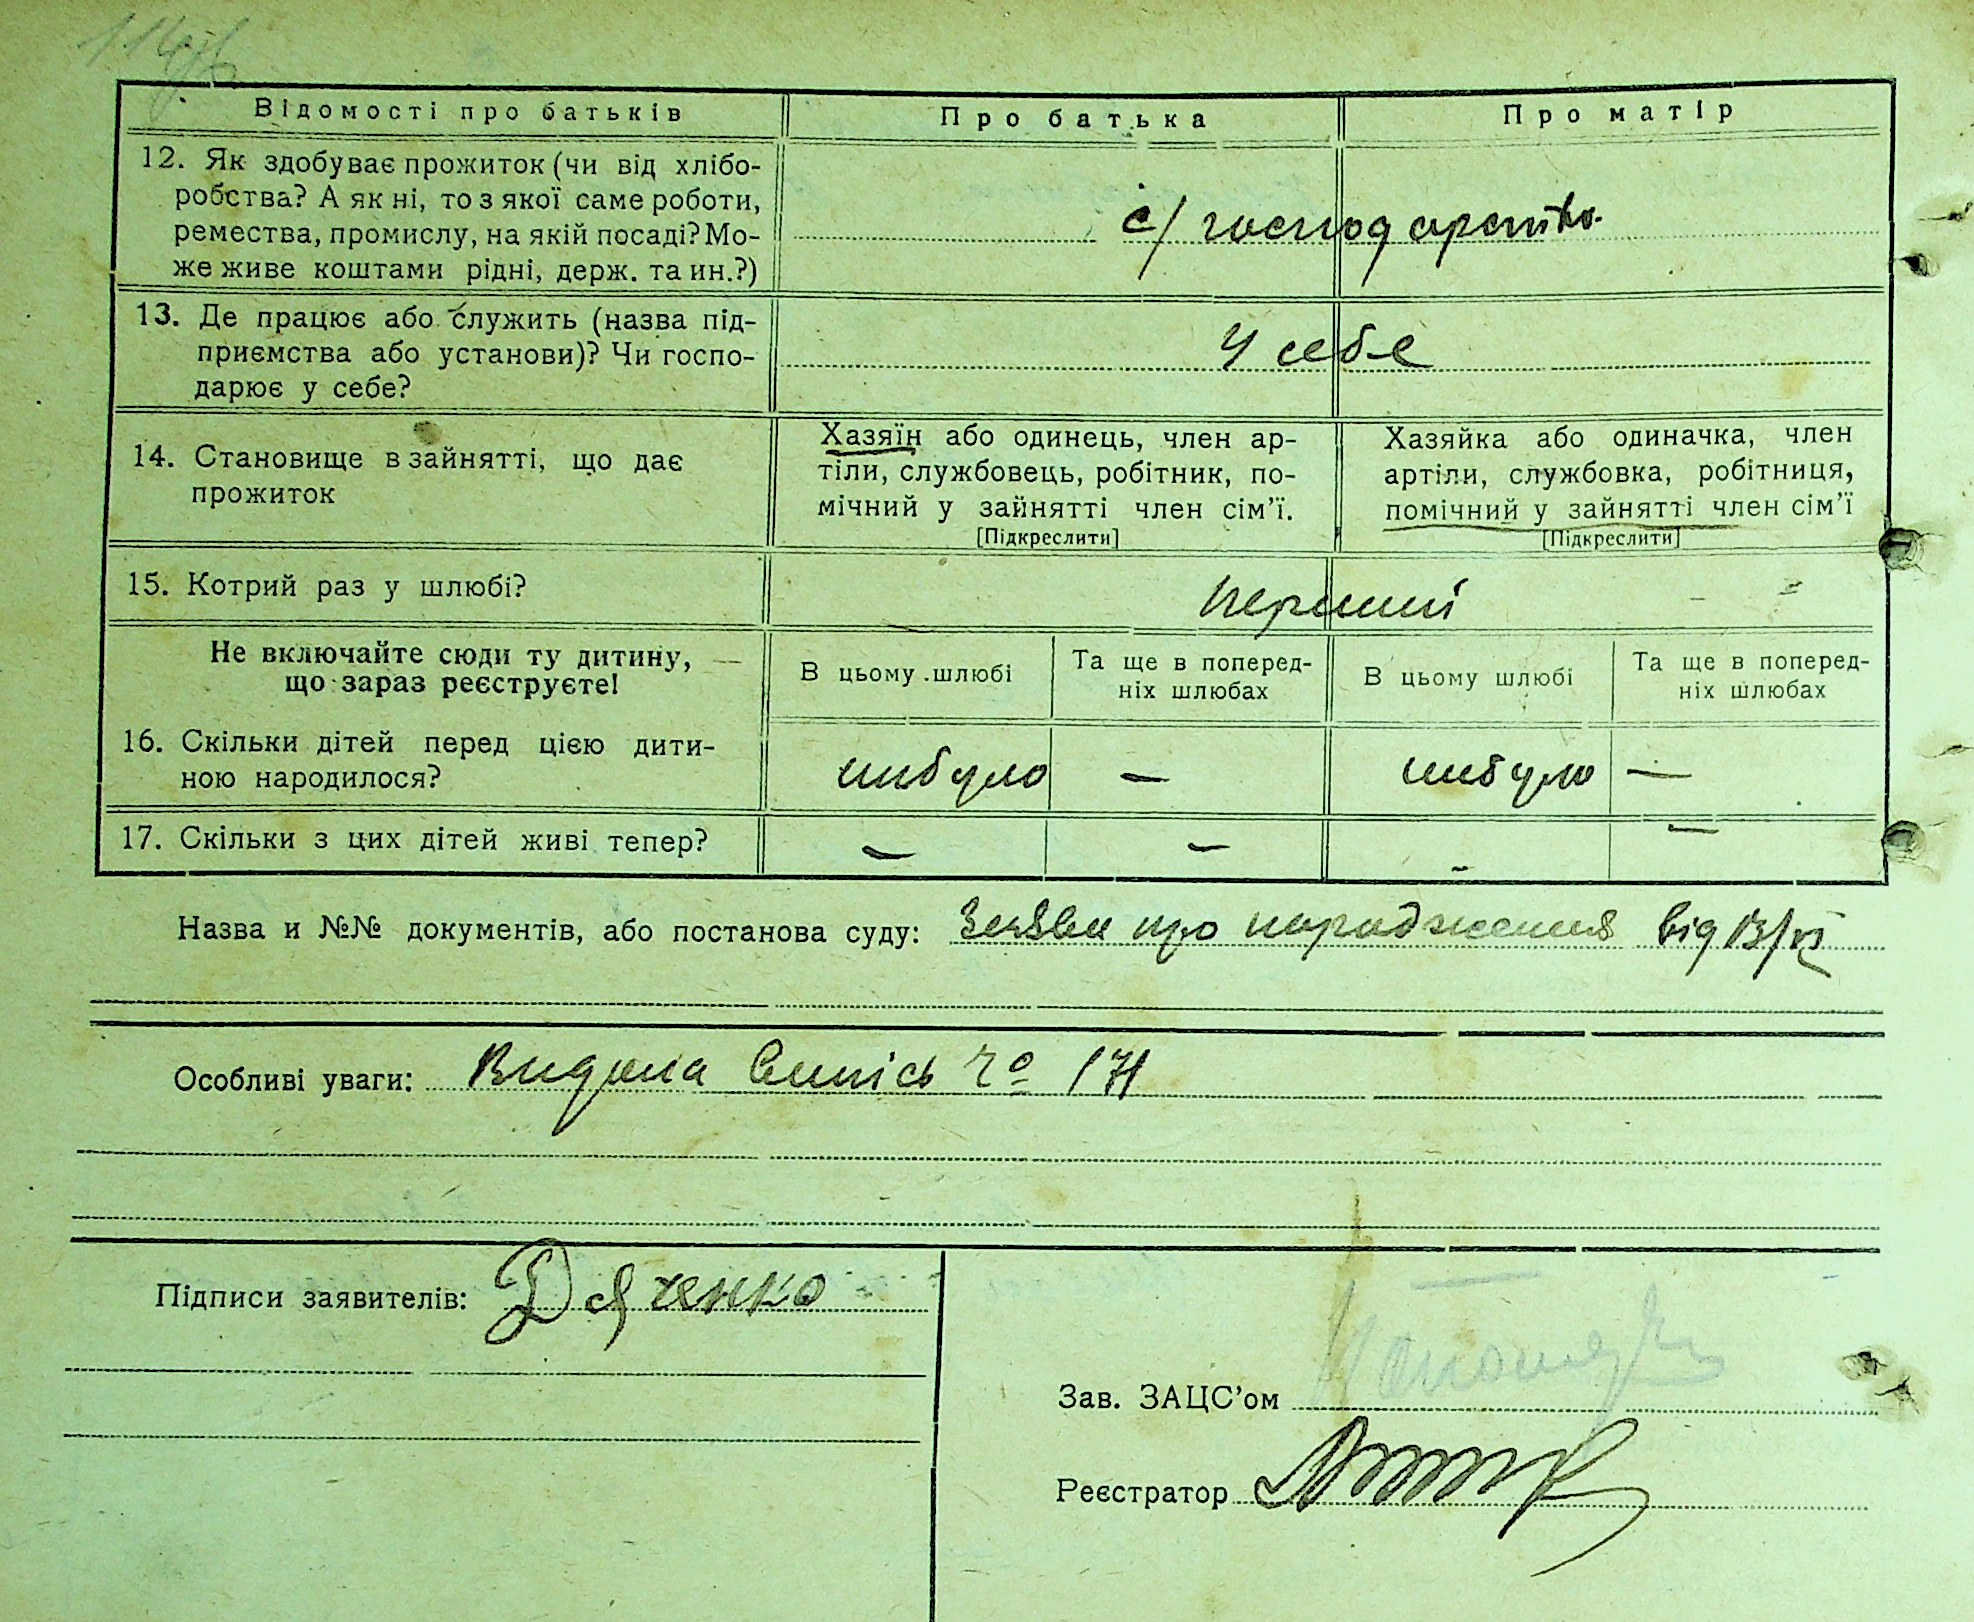 Відомості про батьків
Про батька
Про матір
12. Як здобуває прожиток (чи від хлібо-
робства? А як ні, то з якої саме роботи,
ремества, промислу, на якій посаді? Мо-
же живе коштами рідні, держ. та ин.?)
с/господарство
13. Де працює або служить (назва під-
приємства або установи)? Чи госпо-
дарює у себе?
У себе
14. Становище в зайнятті, що дає
прожиток
Хазяїн або одинець, член ар-
тіли, службовець, робітник, по-
мічний у зайнятті член сім'ї.
[Підкреслити]
Хазяйка або одиначка, член
артіли, службовка, робітниця,
помічний у зайнятті член сім'ї
[Підкреслити]
15. Котрий раз у шлюбі?
перший
Не включайте сюди ту дитину,
що зараз реєструєте!
В цьому шлюбі
Та ще в поперед-
ніх шлюбах
В цьому шлюбі
Та ще в поперед-
ніх шлюбах
16. Скільки дітей перед цією дити-
ною народилося?
нибуло
—
нибуло
—
17. Скільки з цих дітей живі тепер?
—
—
-
—
Назва и №№ документів, або постанова суду: Заява про народження від 13/VI
Особливі уваги: Видана випись № 171
Підписи заявителів: Дяченко
Зав. ЗАЦС'ом
Реєстратор